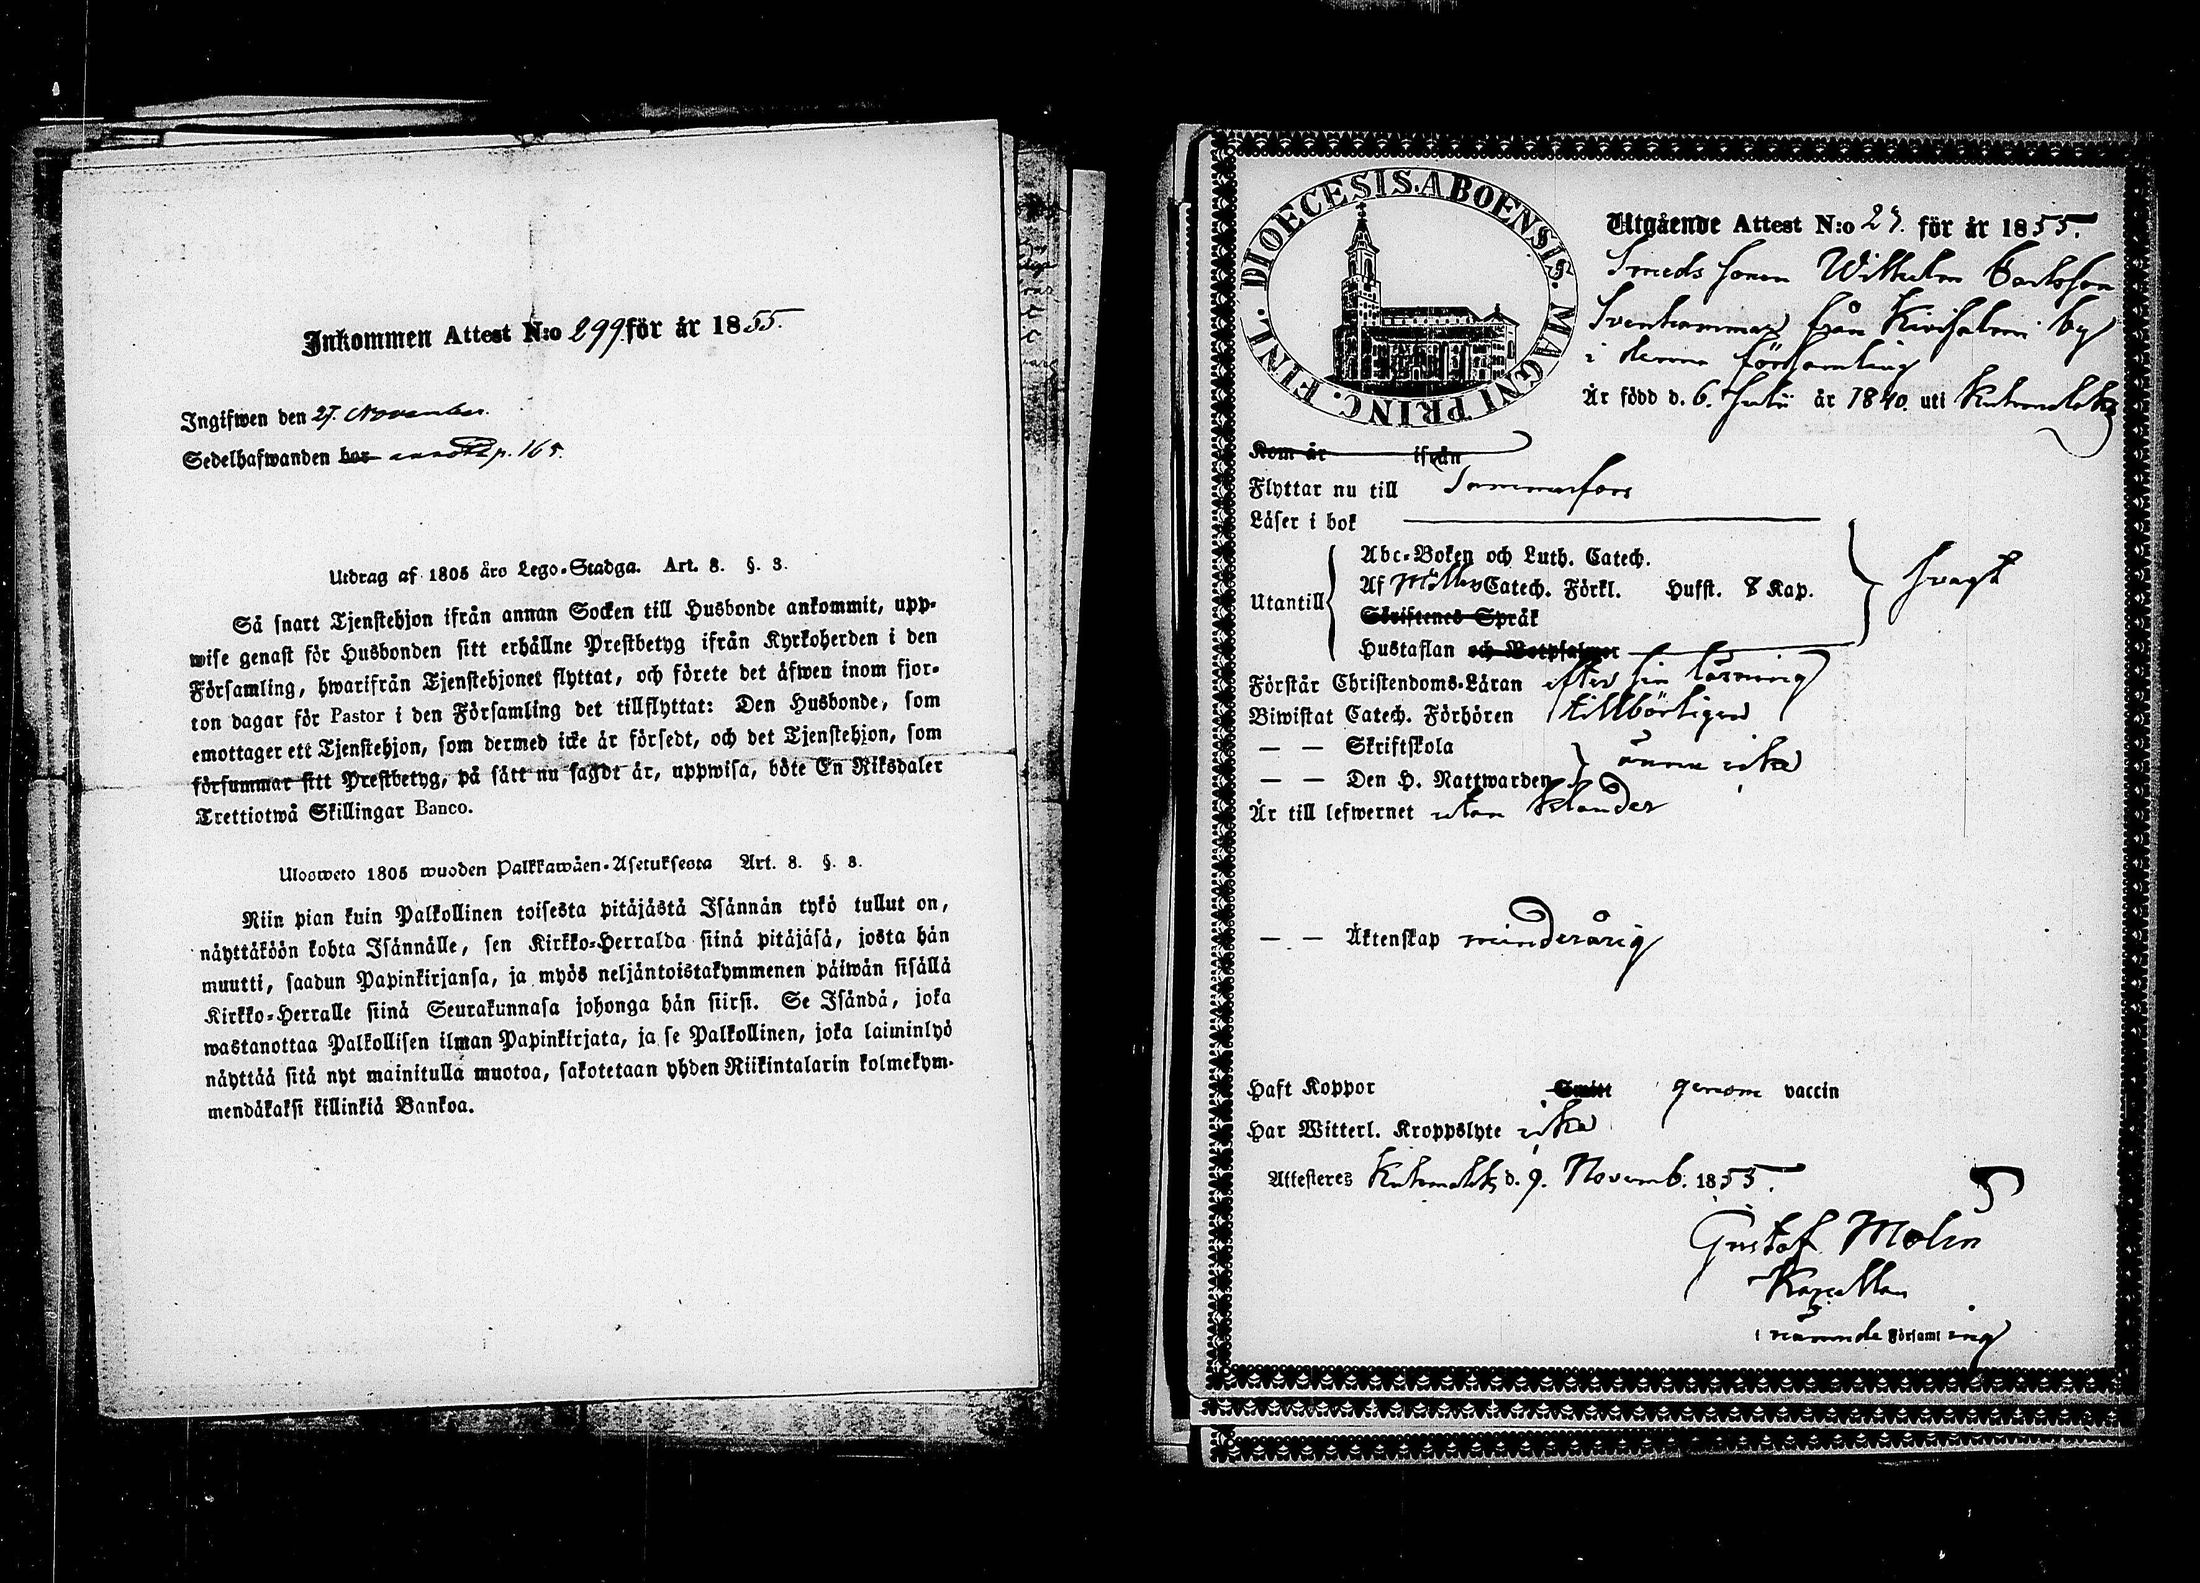 Inkommen Attest N:o 299. för år 1855.
Ingifwen den 27. November.
Sedelhafwanden bor annot. p. 165.
Utdrag af 1805 års Lego-Stadga. Art. 8. §. 3.
Så snart Tjenstehjon ifrån annan Socken till Husbonde ankommit, upp-
wise genast för Husbonden sitt erhållne Prestbetyg ifrån Kyrkoherden i den
Församling, hwarifrån Tjenstehjonet flyttat, och förete det äfwen inom fjor-
ton dagar för Pastor i den Församling det tillflyttat: Den Husbonde, som
emottager ett Tjenstehjon, som dermed icke är försedt, och det Tjenstehjon, som
försummar sitt Prestbetyg, på sätt nu sagdt är, uppwisa, böte En Riksdaler
Trettiotwå Skillingar Banco.
Ulosweto 1805 wuoden Palkkawäen-Asetuksesta Art. 8. §. 3.
Niin pian kuin Palkollinen toisesta pitäjästä Isännän tykö tullut on,
näyttäköön kohta Isännälle, sen Kirkko-Herralda siinä pitäjäsä, josta hän
muutti, saadun Papinkirjansa, ja myös neljäntoistakymmenen päiwän sisällä
Kirkko-Herralle siinä Seurakunnasa johonga hän siirsi. Se Isändä, joka
wastanottaa Palkollisen ilman Papinkirjata, ja se Palkollinen, joka laiminlyö
näyttää sitä nyt mainitulla muotoa, sakotetaan yhden Riikintalarin kolmekym-
mendäkaksi killinkiä Bankoa.
FINL. DIOECESIS. ABOENSIS. MAGNI PRINC.
Utgående Attest N:o 23. för år 1855.
Smeds sonen Wilhelm Carlsson
Svenhammar från Kivisalmi by
i denna församling
Är född d. 6. Julii år 1840. uti Kuhmalaks
Kom år ifrån
Flyttar nu till Tammerfors
Läser i bok
Abc-Boken och Luth. Catech.
Utantill Af Möllers Catech. Förkl. Hufst. 8 Kap. svagt
Skriftenes Språk
Hustaflan och Botpsalmer
Förstår Christendoms-Läran efter sin läsning
Biwistat Catech. Förhören tillbörligen
— — Skriftskola
— — Den H. Nattwarden ännu icke
Är till lefwernet utan klander
— — Äktenskap minderårig
Haft Koppor Smitt genom vaccin
Har Witterl. Kroppslyte icke
Attesteres Kuhmalaks d. 9. Novemb. 1855.
Gustaf Molin
Kapellan
i nämnde Församling